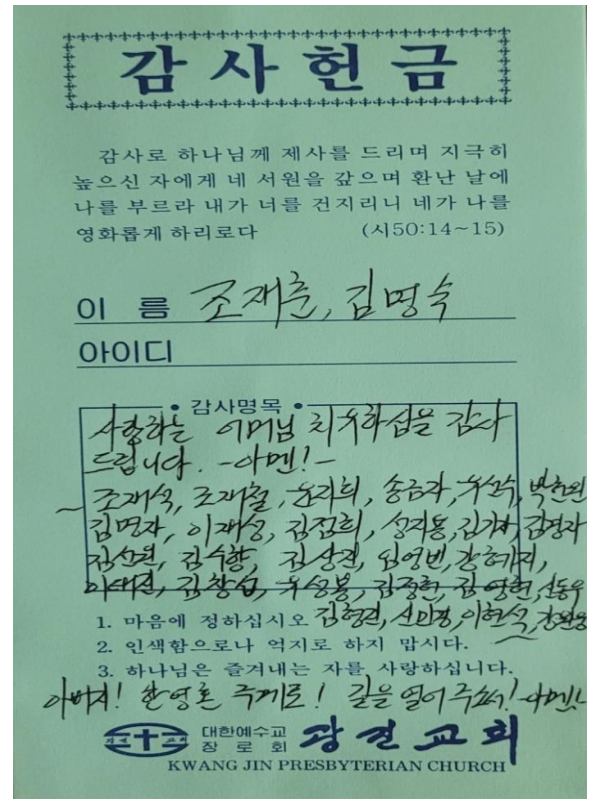 감사헌금
감사로 하나님께 제사를 드리며 지극히
높으신 자에게 네 서원을 갚으며 환난 날에
나를 부르라 내가 너를 건지리니 네가 나를
영화롭게 하리로다 (시50:14~15)
이 름 조재춘, 김명숙
아이디
• 감사명목 •
사랑하는 어머님 치유하심을 감사
드립니다. -아멘!-
~조재석, 조재철, 윤지희, 송금자, 우선숙,
김명자, 이재성, 김점희, 성지용, 김경자
김선원, 김수향, 김상권, 임영빈,
김창섭, 우성봉, 김정현, 김영현, 신동우
1. 마음에 정하십시오 김형진, 신미경, 이현석,
2. 인색함으로나 억지로 하지 맙시다.
3. 하나님은 즐겨내는 자를 사랑하십니다.
아버지! 한 영혼 주께로! 길을 열어 주소서! -아멘!-
대한예수교
장로회 광진교회
KWANG JIN PRESBYTERIAN CHURCH